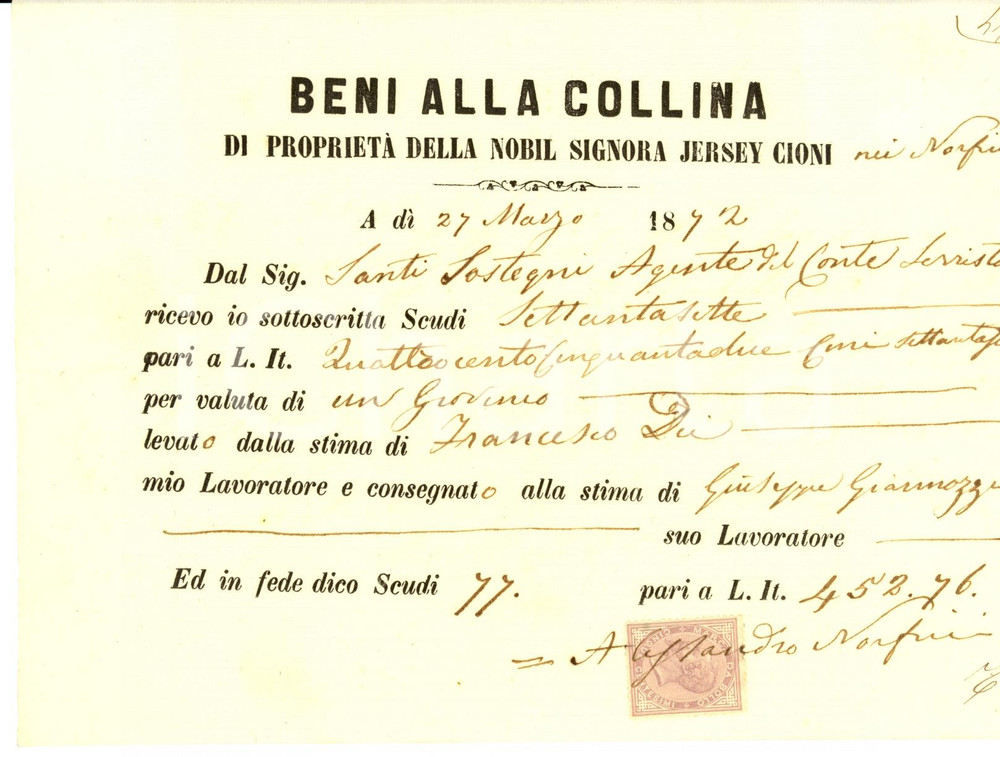 BENI ALLA COLLINA
DI PROPRIETÀ DELLA NOBIL SIGNORA JERSEY CIONI nei Norfini
A dì 27 Marzo 1872
Dal Sig. Santi Sostegni Agente del Conte Serristo
ricevo io sottoscritta Scudi Settantasette
pari a L. It. Quattrocento Cinquantadue Cmi settantase
per valuta di un Giovenco
levato dalla stima di Francesco
mio Lavoratore e consegnato alla stima di Giuseppe Giannozzi
suo Lavoratore
Ed in fede dico Scudi 77. pari a L. It. 452.76.
= Alessandro Norfini
MARCA DA BOLLO